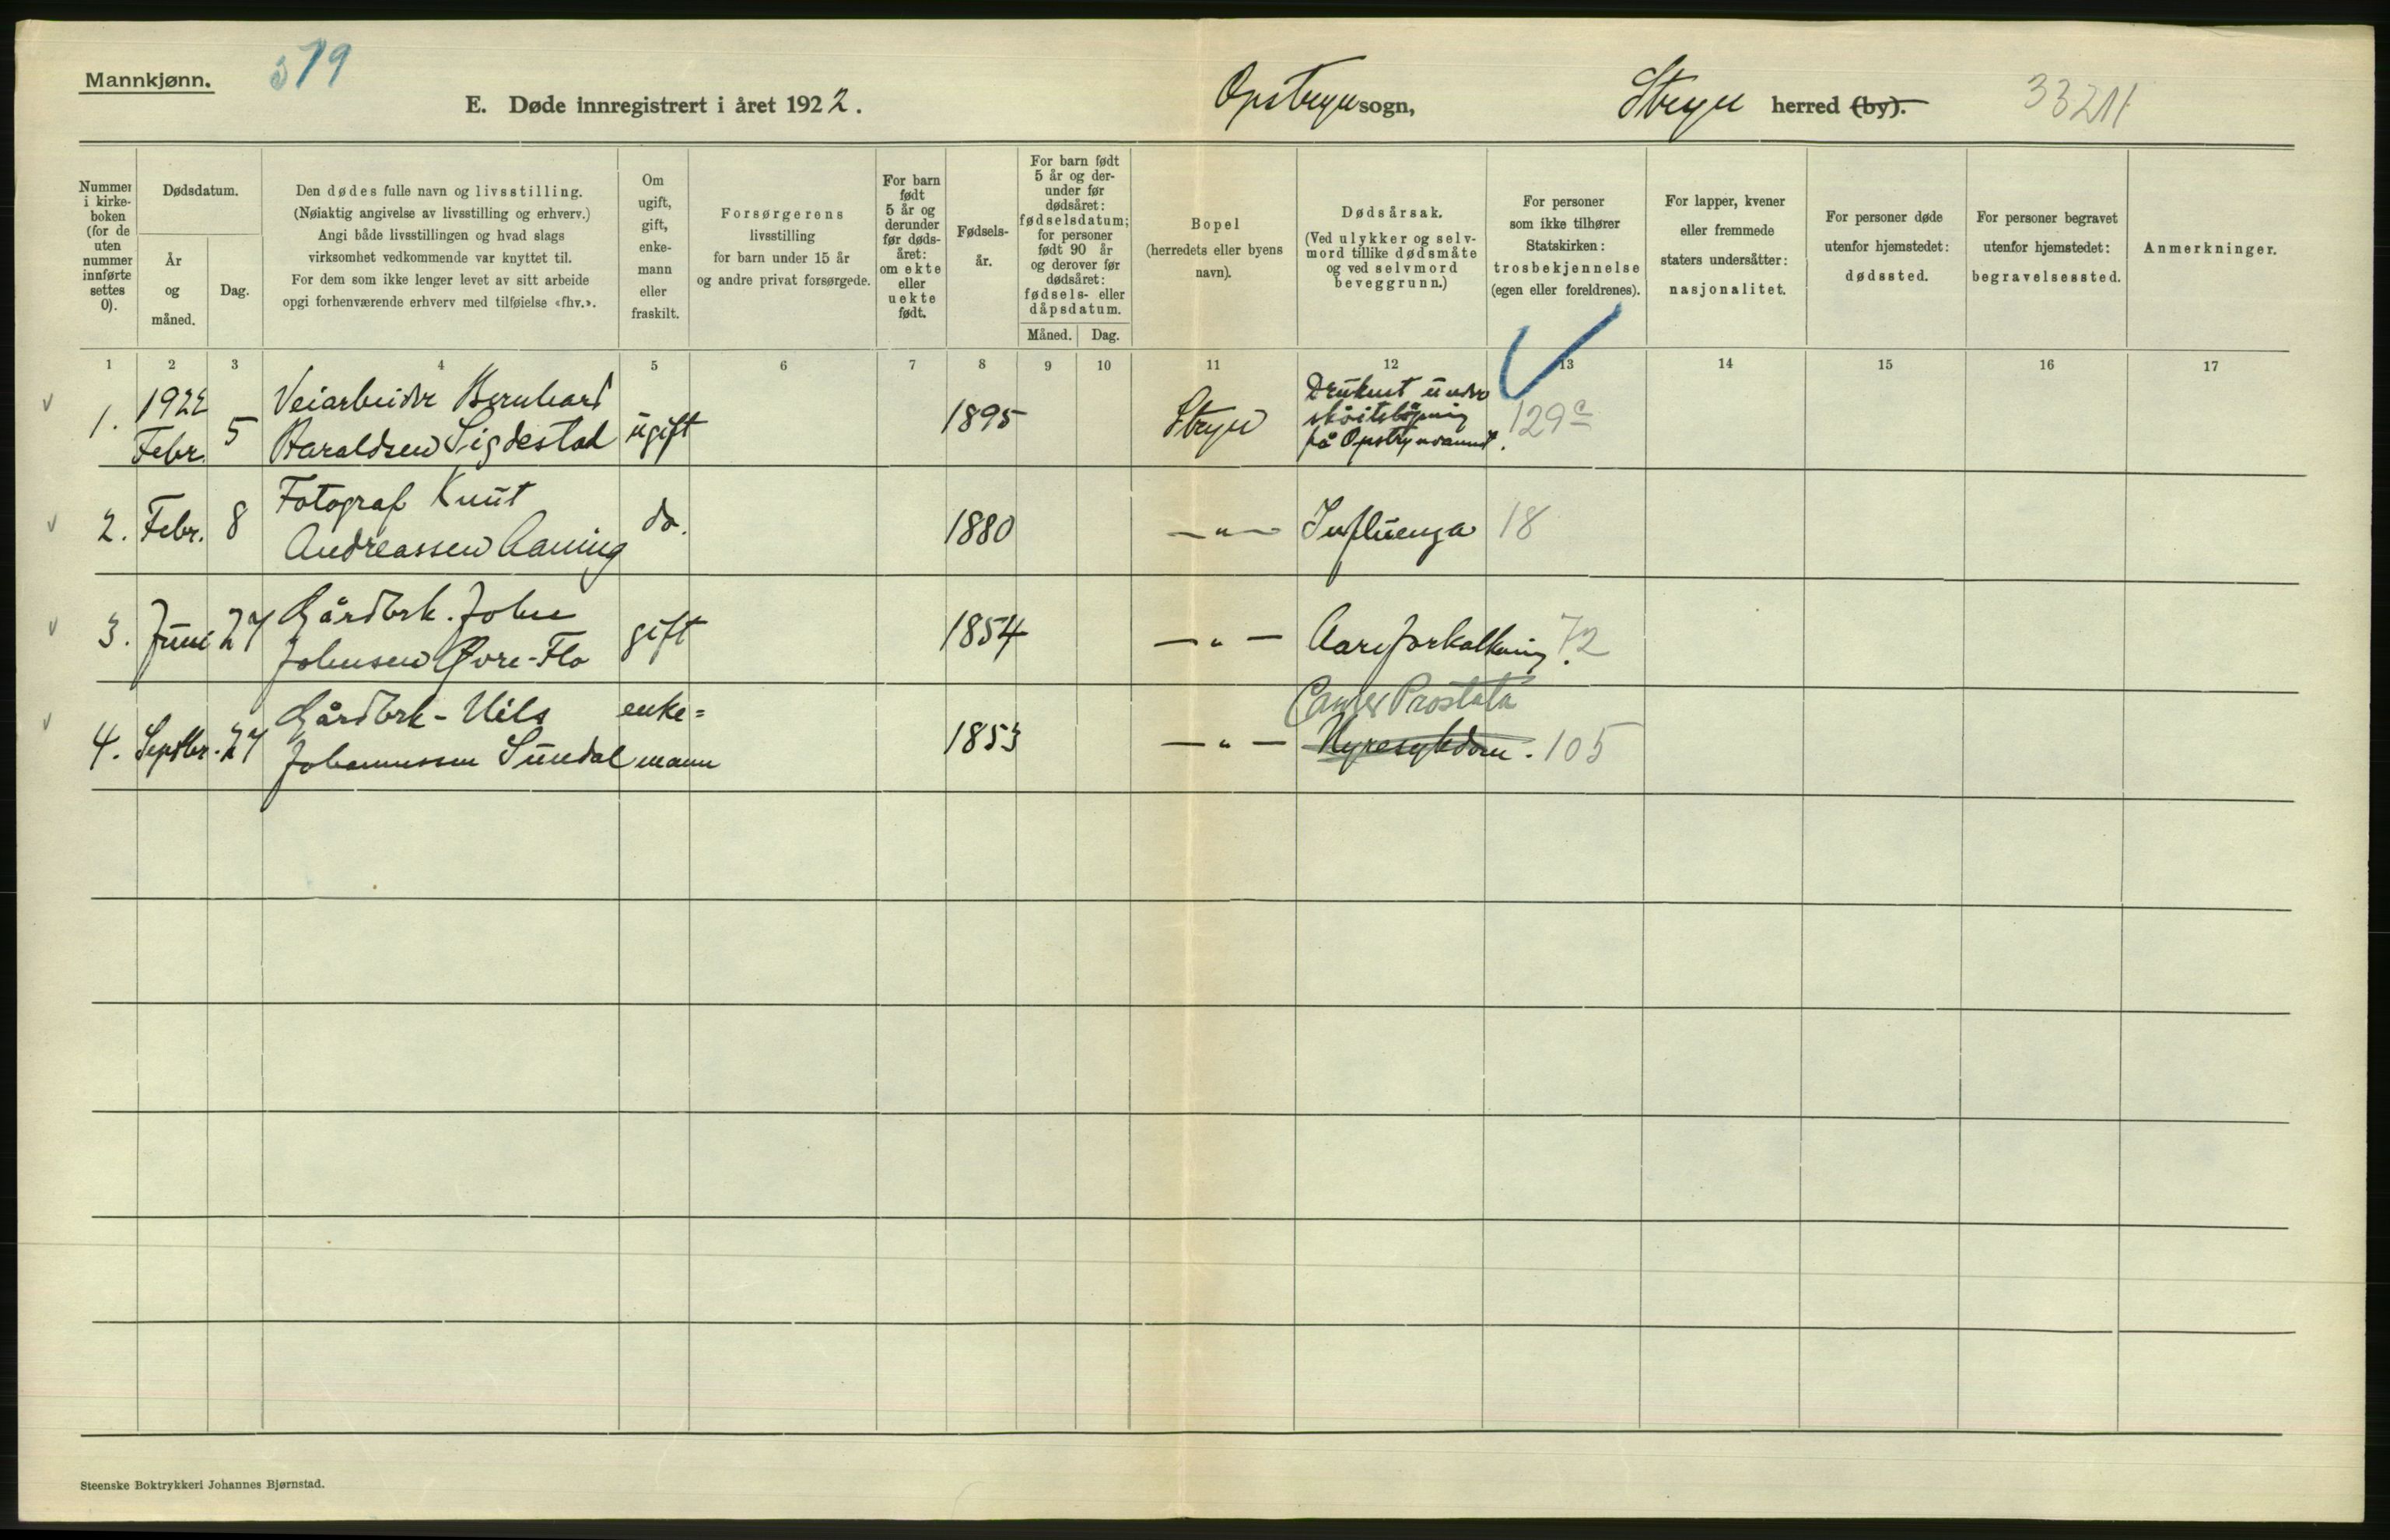 Mannkjønn.
379
E. Døde innregistrert i året 1922.
Opstryn sogn,
Stryn herred (by).
Nummer i kirke-boken (for de uten nummer innførte settes 0).
Dødsdatum.
År og måned.
Dag.
Den dødes fulle navn og livsstilling.
(Nøiaktig angivelse av livsstilling og erhverv.)
Angi både livsstillingen og hvad slags
virksomhet vedkommende var knyttet til.
For dem som ikke lenger levet av sitt arbeide
opgi forhenværende erhverv med tilføielse «fhv.».
Om
ugift,
gift,
enke-
mann
eller
fraskilt.
Forsørgerens
livsstilling
for barn under 15 år
og andre privat forsørgede.
For barn
født
5 år og
derunder
før døds-
året:
om ekte
eller
uekte
født.
Fødsels-
år.
For barn født
5 år og der-
under før
dødsåret:
fødselsdatum;
for personer
født 90 år
og derover før
dødsåret:
fødsels- eller
dåpsdatum.
Måned. Dag.
Bopel
(herredets eller byens
navn).
Dødsårsak.
(Ved ulykker og selv-
mord tillike dødsmåte
og ved selvmord
beveggrunn.)
For personer
som ikke tilhører
Statskirken:
trosbekjennelse
(egen eller foreldrenes).
For lapper, kvener
eller fremmede
staters undersåtter:
nasjonalitet.
For personer døde
utenfor hjemstedet:
dødssted.
For personer begravet
utenfor hjemstedet:
begravelsessted.
Anmerkninger.
1 2 3 4 5 6 7 8 9 10 11 12 13 14 15 16 17
1. 1922 Febr. 5 Veiarbeider Bernhard
Haraldsen Sigdestad ugift 1895 Stryn Druknet under
skøiteløpning
på Opstrynvannet. 129c
2. Febr. 8 Fotograf Knut
Andreassen Aaning do. 1880 — " — Influenza 18
3. Juni 27 Gårdbrk. John
Johnsen Øvre-Flo gift 1854 — " — Aareforkalkning. 72
4. Septbr. 27 Gårdbrk- Nils
Johannessen Sundal enke=
mann 1853 — " — Cancer Prostata
Nyresykdom. 105
Steenske Boktrykkeri Johannes Bjørnstad.